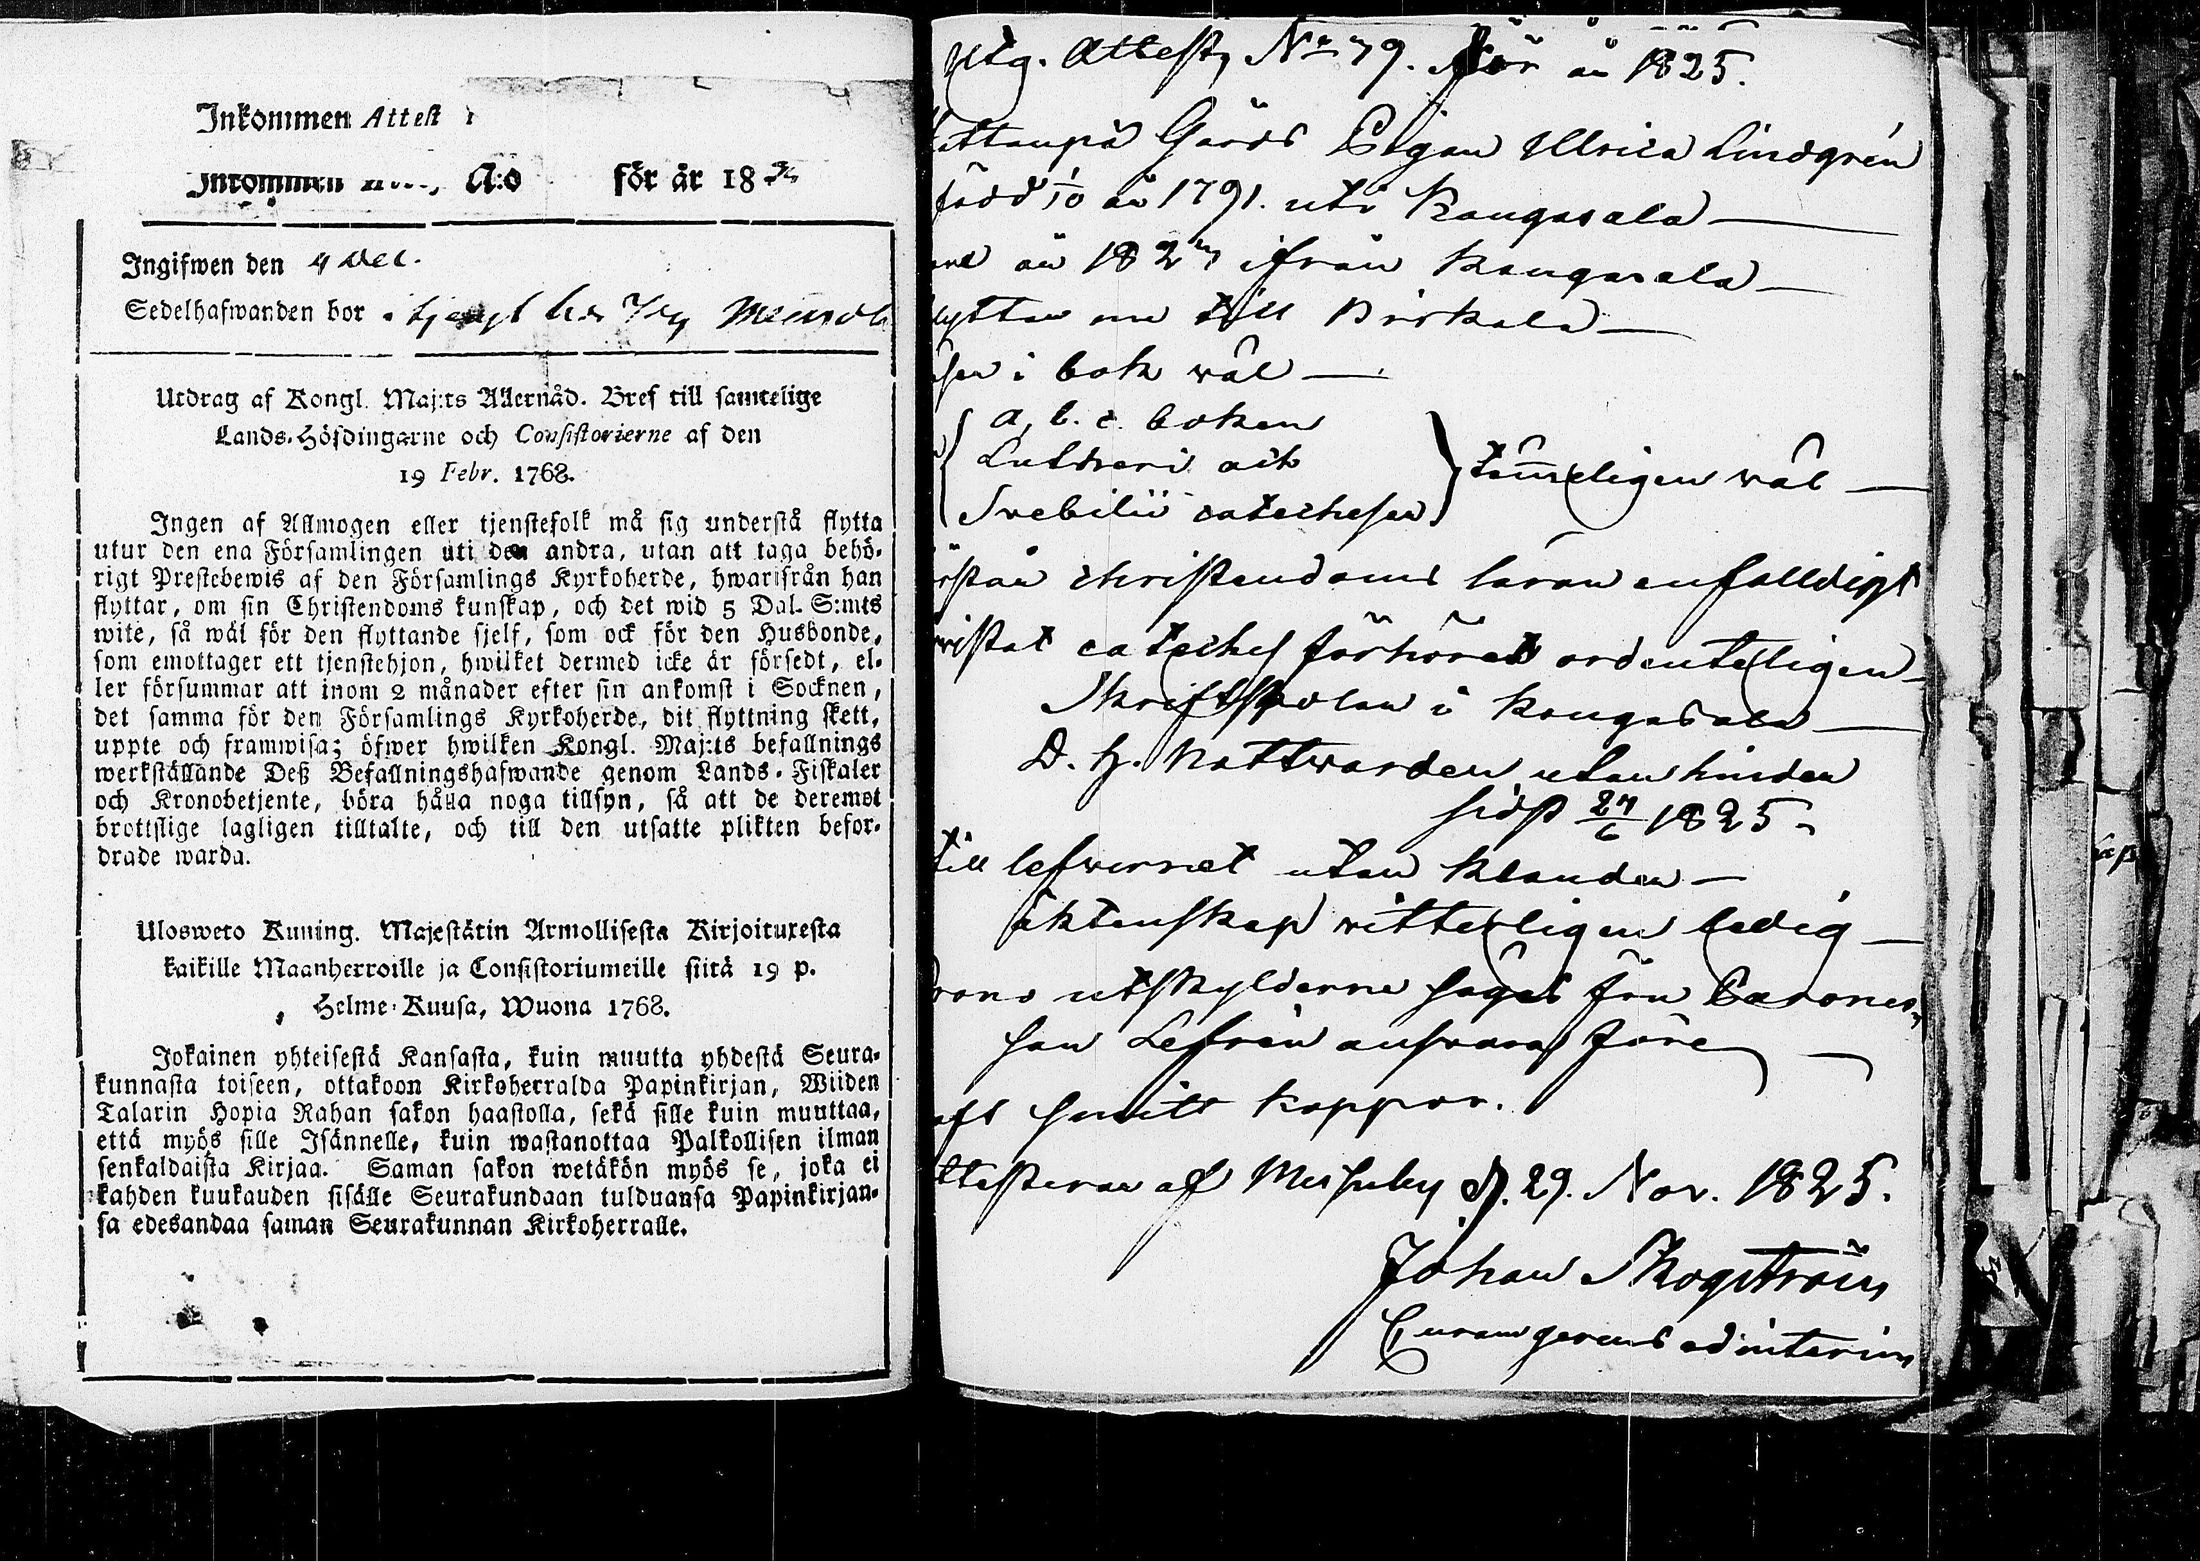 Inkommen Attest
A:o för år 18
Ingifwen den 4 Dec.
Sedelhafwanden bor i tjenst hos
Utdrag af Kongl. Maj:ts Allernåd. Bref till samtelige
Lands-Höfdingarne och Consistorierne af den
19 Febr. 1768.
Ingen af Allmogen eller tjenstefolk må sig understå flytta
utur den ena Församlingen uti den andra, utan att taga behö-
rigt Prestebewis af den Församlings Kyrkoherde, hwarifrån han
flyttar, om sin Christendoms kunskap, och det wid 5 Dal. S:mts
wite, så wäl för den flyttande sjelf, som ock för den Husbonde,
som emottager ett tjenstehjon, hwilket dermed icke är försedt, el-
ler försummar att inom 2 månader efter sin ankomst i Socknen,
det samma för den Församlings Kyrkoherde, dit flyttning skett,
uppte och framwisa; öfwer hwilken Kongl. Maj:ts befallnings
werkställande Deß Befallningshafwande genom Lands-Fiskaler
och Kronobetjente, böra hålla noga tillsyn, så att de deremot
brottslige lagligen tilltalte, och till den utsatte plikten befor-
drade warda.
Ulosweto Kuning. Majestätin Armollisesta Kirjoituxesta
kaikille Maanherroille ja Consistoriumeille siitä 19 p.
Helme-Kuusa, Wuona 1768.
Jokainen yhteisestä Kansasta, kuin muutta yhdestä Seura-
kunnasta toiseen, ottakoon Kirkoherralda Papinkirjan, Wiiden
Talarin Hopia Rahan sakon haastolla, sekä sille kuin muuttaa,
että myös sille Isännelle, kuin wastanottaa Palkollisen ilman
senkaldaista Kirjaa. Saman sakon wetäkön myös se, joka ei
kahden kuukauden sisälle Seurakundaan tulduansa Papinkirjan-
sa edesandaa saman Seurakunnan Kirkoherralle.
Utg. Attest, No 79. för år 1825.
Gårds Pigan Ulrica Lindgrén
född 1/10 år 1791. uti Kangasala
år 1824 ifrån Kangasala
nu till Birkala
i bok wäl
a, b. c. boken
Lutheri och
Svebilii catechesen tämmeligen wäl
christendoms läran enfalldigt
catechesförhören ordenteligen
Skriftskolan i Kangasala
D. H. Nattwarden utan hinder
sidst 24/6 1825
till lefwernet utan klander
äktenskap witterligen ledig
utskylderne säges fru Barones-
san Lefrén answara före
haft smitt koppor.
af Messuby d. 29. Nov. 1825.
Johan Skogström
Curam gerens ad interim